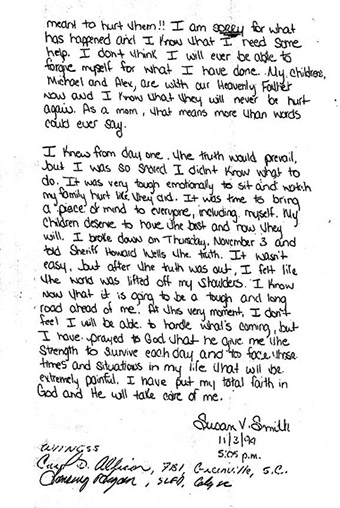 meant to hurt them!! I am sorry for what
has happened and I know that I need some
help. I don't think I will ever be able to
forgive myself for what I have done. My children,
Michael and Alex, are with our Heavenly Father
now and I know that they will never be hurt
again. As a mom, that means more than words
could ever say.
I knew from day one, the truth would prevail,
but I was so scared I didn't know what to
do. It was very tough emotionally to sit and watch
my family hurt like they did. It was time to bring
a "piece of mind to everyone, including myself. My
children deserve to have the best and now they
will. I broke down on Thursday, November 3 and
told Sheriff Howard Wells the truth. It wasn't
easy, but after the truth was out, I felt like
the world was lifted off my shoulders. I know
now that it is going to be a tough and long
road ahead of me. At this very moment, I don't
feel I will be able to handle what's coming, but
I have prayed to God that he give me the
strength to survive each day and to face those
times and situations in my life that will be
extremely painful. I have put my total faith in
God and He will take care of me.
Susan V. Smith
11/3/94
5:05 p.m.
FBI, Greenville, S.C.
SLED,